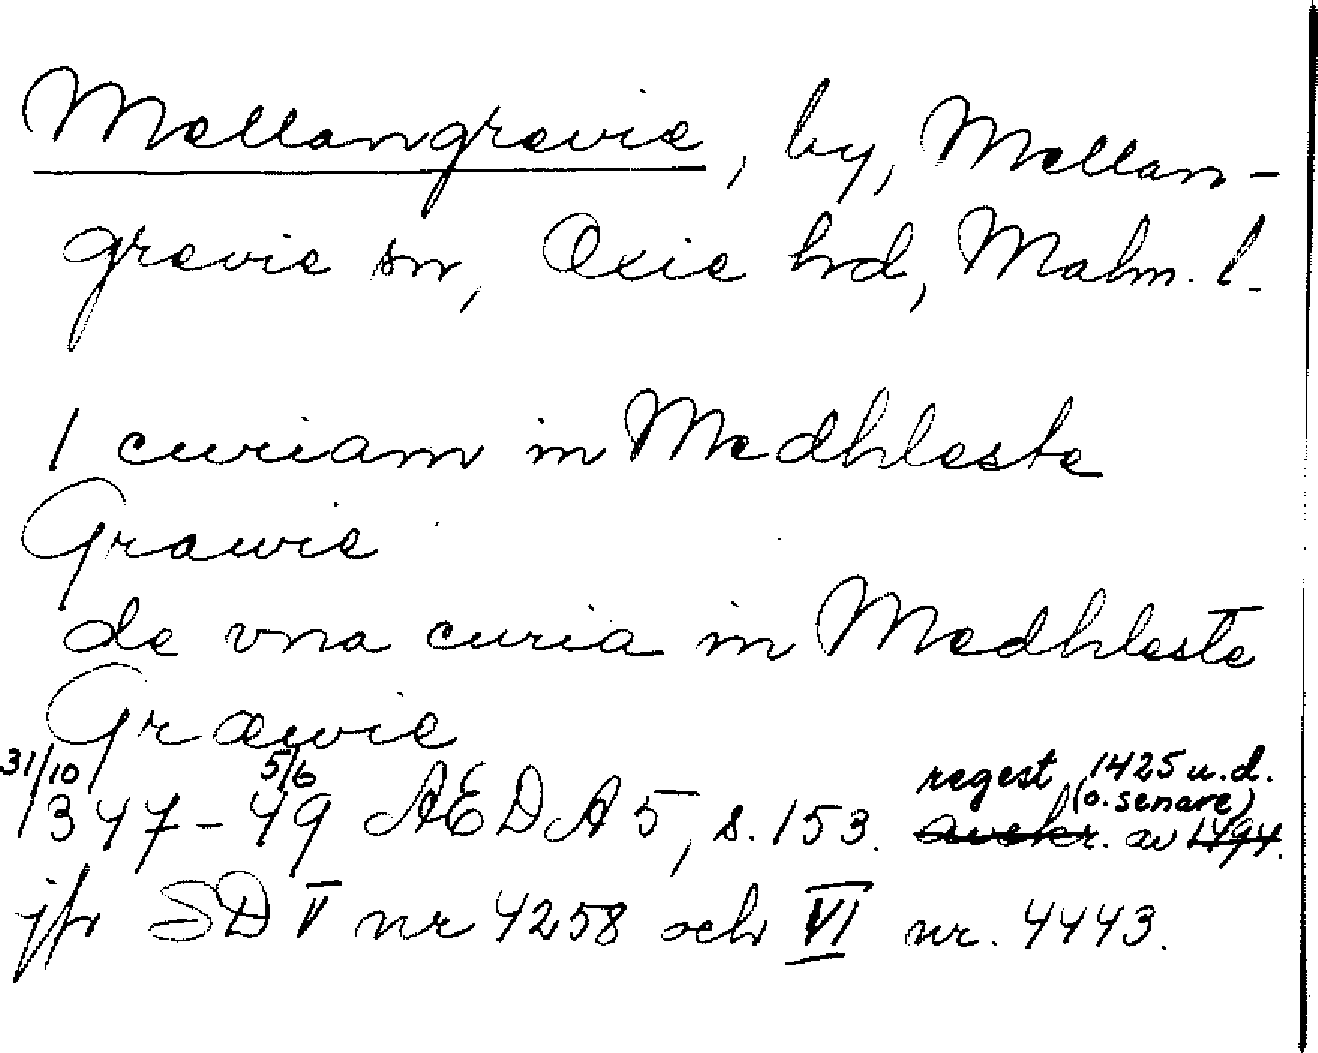 Mellangrevie, by, Mellan-
grevie sn, Oxie hd, Malm. l.
1 curiam in Medhleste
Grawie
de vna curia in Medhleste
Græwie
31/10 5/6 regest 1425 u.d.
(o. senare)
1347-49 AEDA 5, s. 153. avskr. av 1494.
jfr SD V nr 4258 och VI nr. 4443.